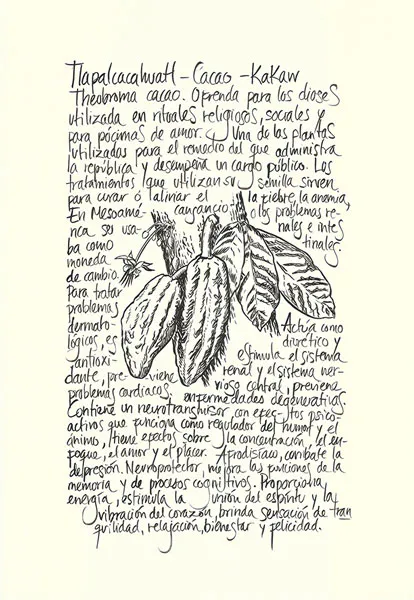 Tlapalcacahuatl - Cacao - Kakaw
Theobroma cacao. Ofrenda para los dioses
utilizada en rituales religiosos, sociales y
para pócimas de amor. Una de las plantas
utilizadas para el remedio del que administra
la república y desempeña un cargo público. Los
tratamientos que utilizan su semilla sirven
para curar ó aliviar el cansancio, la fiebre, la anemia,
o los problemas re-
nales e intes
tinales.
En Mesoamé
rica se usa-
ba como
moneda
de cambio.
Para tratar
problemas
dermato-
lógicos, es
antioxi-
dante, pre-viene
problemas cardiacos.
Actúa como
diurético y
estimula el sistema
renal y el sistema ner-
vioso central, previene
enfermedades degenerativas.
Contiene un neurotransmisor con efectos psico-
activos que funciona como regulador del humor y el
ánimo, tiene efectos sobre la concentración, el en-
foque, el amor y el placer. Afrodisíaco, combate la
depresión. Neuroprotector, mejora las funciones de la
memoria y de procesos cognitivos. Proporciona
energía, estimula la unión del espíritu y la
vibración del corazón, brinda sensación de tran
quilidad, relajación, bienestar y felicidad.